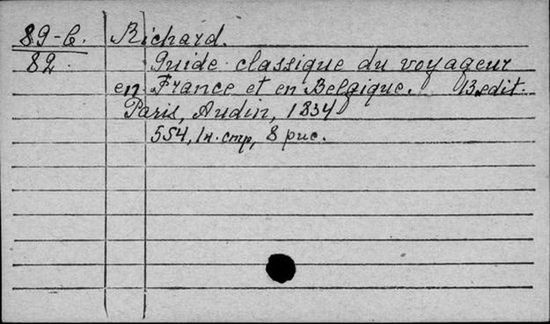 89-6. Richard.
82. Guide classique du voyageur
en France et en Belgique. 13 edit.
Paris, Audin, 1834
554, 1н. стр, 8 рис.